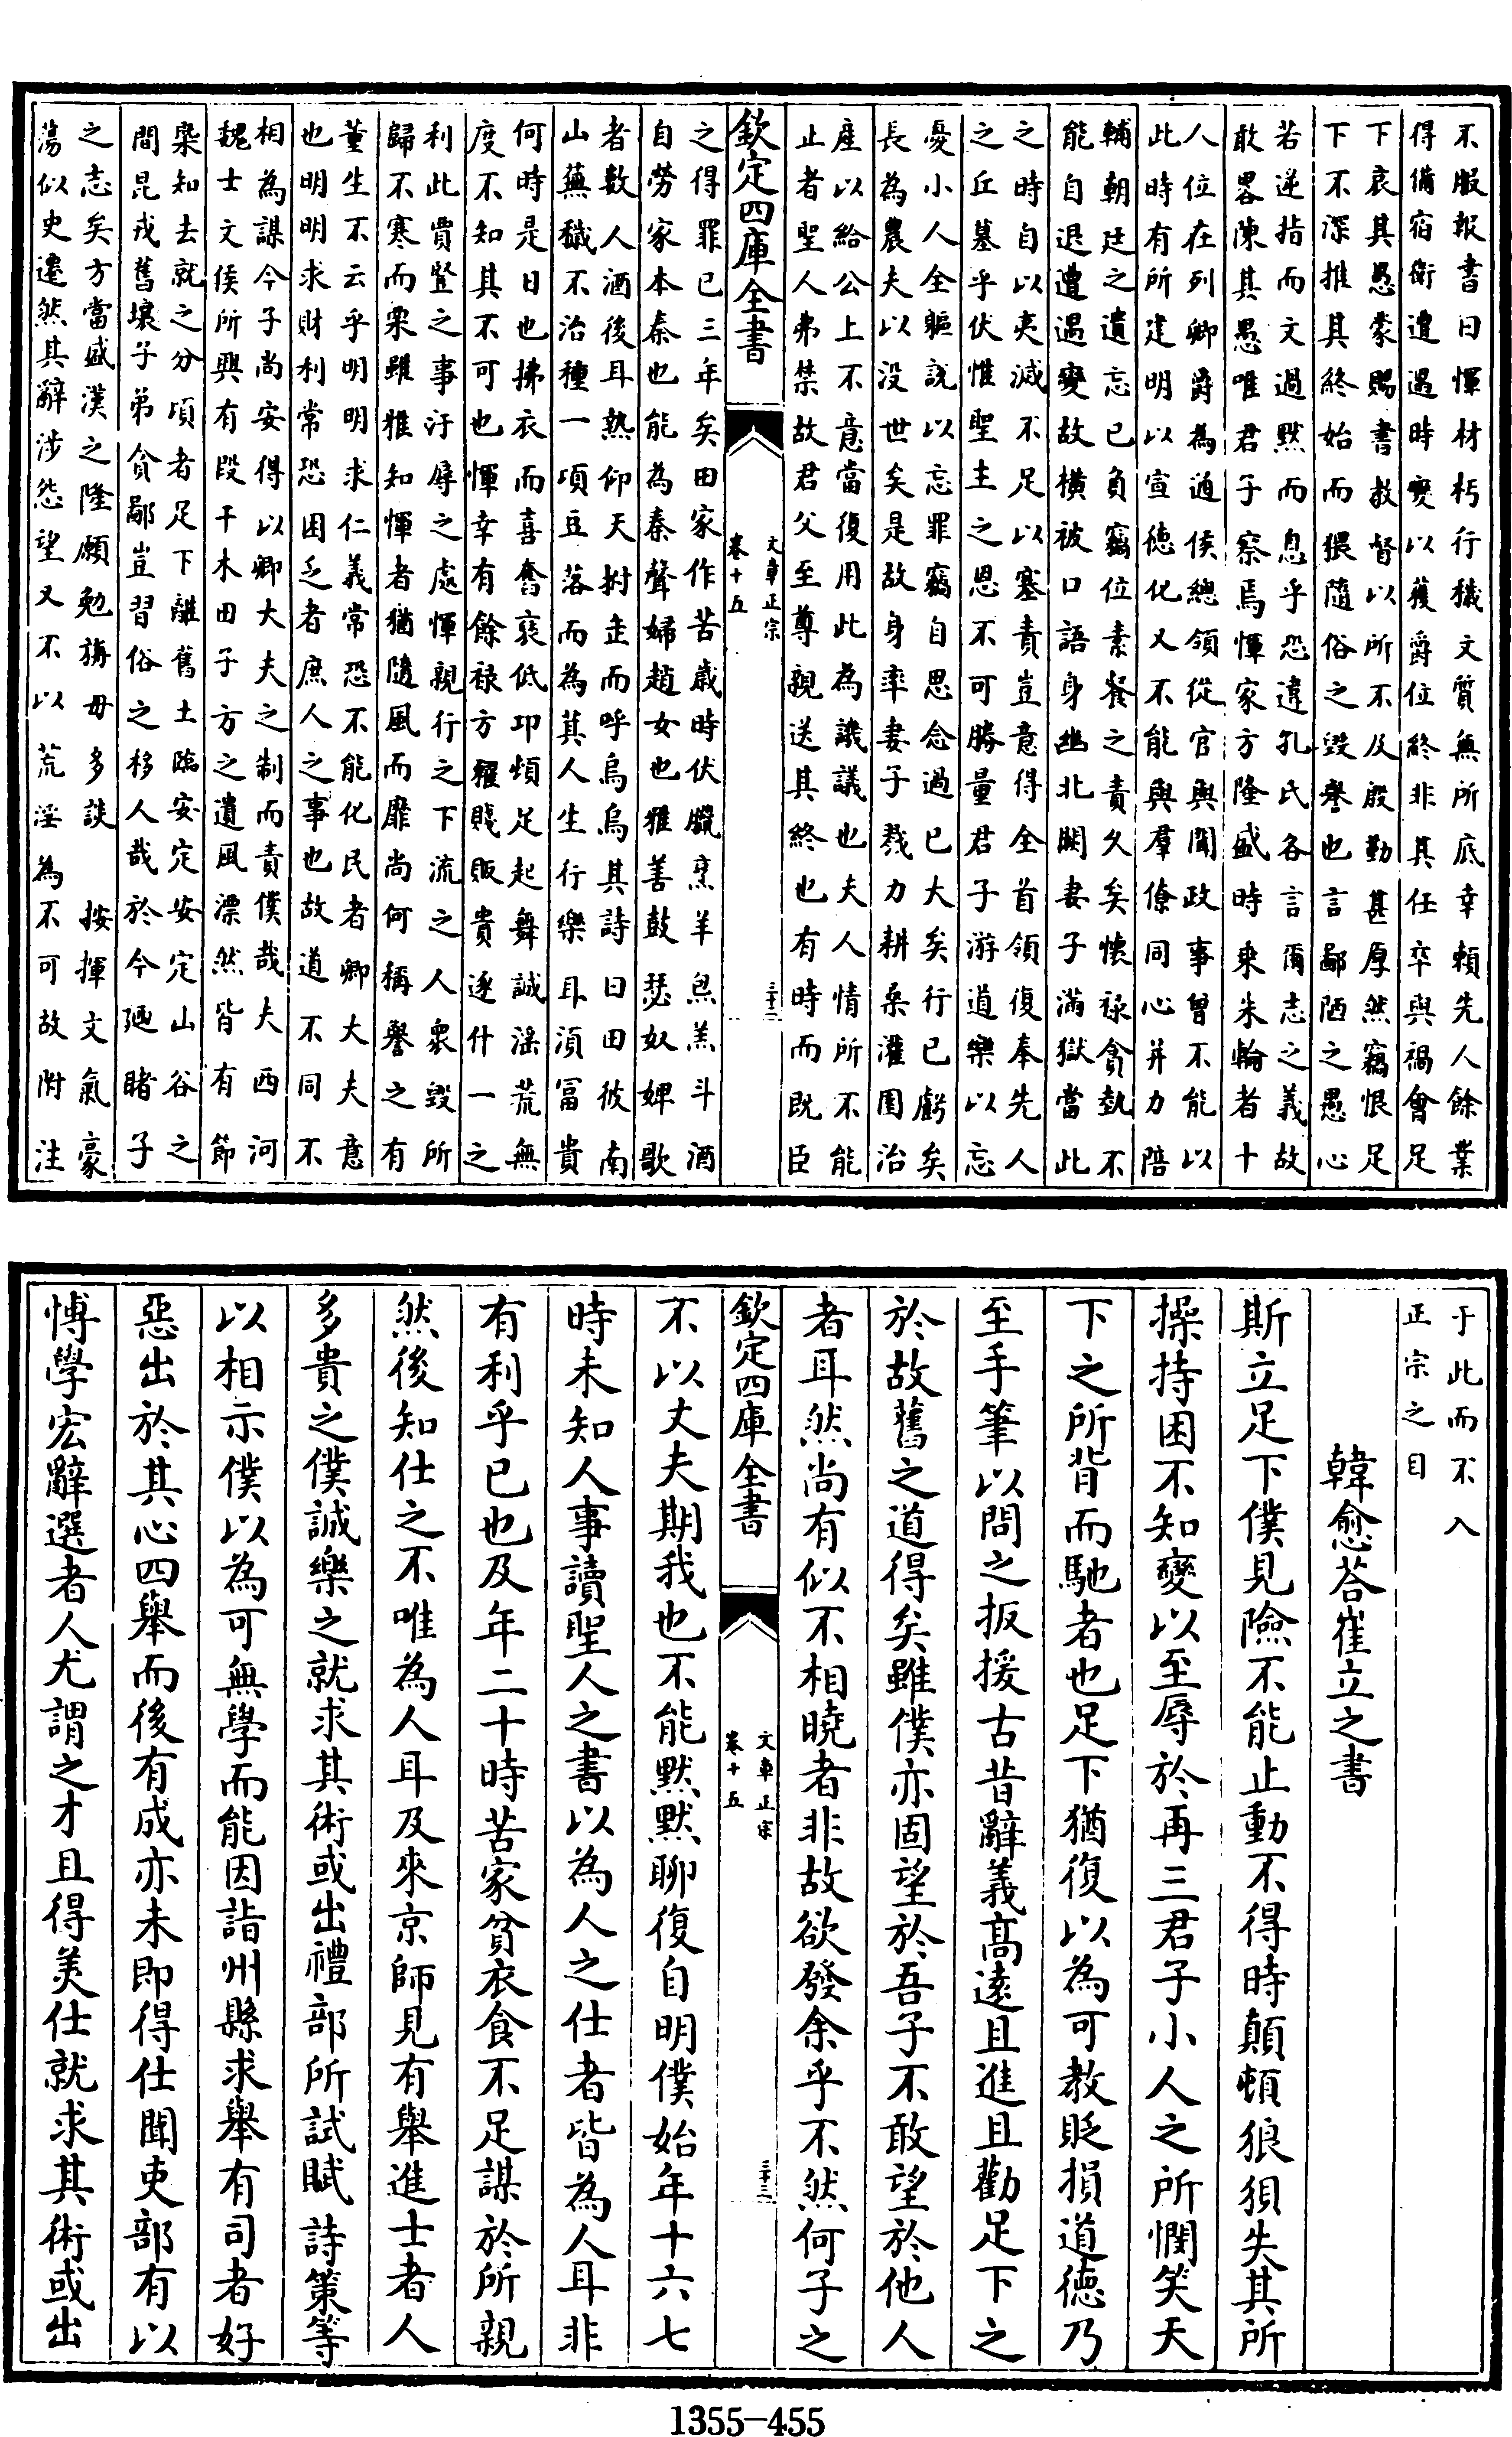 不服報書曰惲材朽行穢文質無所底幸賴先人餘業
得備宿衛遭遇時變以獲爵位終非其任卒與禍會足
下哀其愚蒙賜書教督以所不及殷勤甚厚然竊恨足
下不深推其終始而猥隨俗之毀譽也言鄙陋之愚心
若逆指而文過默而息乎恐違孔氏各言爾志之義故
敢畧陳其愚唯君子察焉惲家方隆盛時乘朱輪者十
人位在列卿爵為通侯總領從官與聞政事曾不能以
此時有所建明以宣德化又不能與羣僚同心并力陪
輔朝廷之遺忘已負竊位素餐之責久矣懷祿貪埶不
能自退遭遇變故橫被口語身幽北闕妻子滿獄當此
之時自以夷滅不足以塞責豈意得全首領復奉先人
之丘墓乎伏惟聖主之恩不可勝量君子游道樂以忘
憂小人全軀説以忘罪竊自思念過已大矣行已虧矣
長為農夫以没世矣是故身率妻子戮力耕桑灌園治
産以給公上不意當復用此為譏議也夫人情所不能
止者聖人弗禁故君父至尊親送其終也有時而既臣
欽定四庫全書
文章正宗
卷十五
三十二
之得罪已三年矣田家作苦歲時伏臘烹羊炰羔斗酒
自勞家本秦也能為秦聲婦趙女也雅善鼓瑟奴婢歌
者數人酒後耳熱仰天拊缶而呼烏烏其詩曰田彼南
山蕪穢不治種一頃豆落而為萁人生行樂耳須富貴
何時是日也拂衣而喜奮褎低卬頓足起舞誠淫荒無
度不知其不可也惲幸有餘祿方糴賤販貴逐什一之
利此賈豎之事汙辱之處惲親行之下流之人衆毀所
歸不寒而栗雖雅知惲者猶隨風而靡尚何稱譽之有
董生不云乎明明求仁義常恐不能化民者卿大夫意
也明明求財利常恐困乏者庶人之事也故道不同不
相為謀今子尚安得以卿大夫之制而責僕哉夫西河
魏士文侯所興有段干木田子方之遺風漂然皆有節
槩知去就之分頃者足下離舊土臨安定安定山谷之
間昆戎舊壤子弟貪鄙豈習俗之移人哉於今迺睹子
之志矣方當盛漢之隆願勉旃毋多談　按揮文氣豪
蕩似史遷然其辭涉怨望又不以荒淫為不可故附注
于此而不入
正宗之目
韓愈荅崔立之書
斯立足下僕見險不能止動不得時顛頓狼狽失其所
操持困不知變以至辱於再三君子小人之所憫笑天
下之所背而馳者也足下猶復以為可教貶損道德乃
至手筆以問之扳援古昔辭義高遠且進且勸足下之
於故舊之道得矣雖僕亦固望於吾子不敢望於他人
者耳然尚有似不相曉者非故欲發余乎不然何子之
欽定四庫全書
文章正宗
卷十五
三十三
不以丈夫期我也不能默默聊復自明僕始年十六七
時未知人事讀聖人之書以為人之仕者皆為人耳非
有利乎已也及年二十時苦家貧衣食不足謀於所親
然後知仕之不唯為人耳及來京師見有舉進士者人
多貴之僕誠樂之就求其術或出禮部所試賦詩策等
以相示僕以為可無學而能因詣州縣求舉有司者好
惡出於其心四舉而後有成亦未即得仕聞吏部有以
博學宏辭選者人尤謂之才且得美仕就求其術或出
1355—455